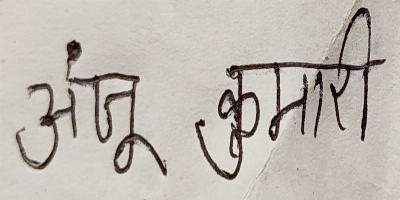 अंजू कुमारी